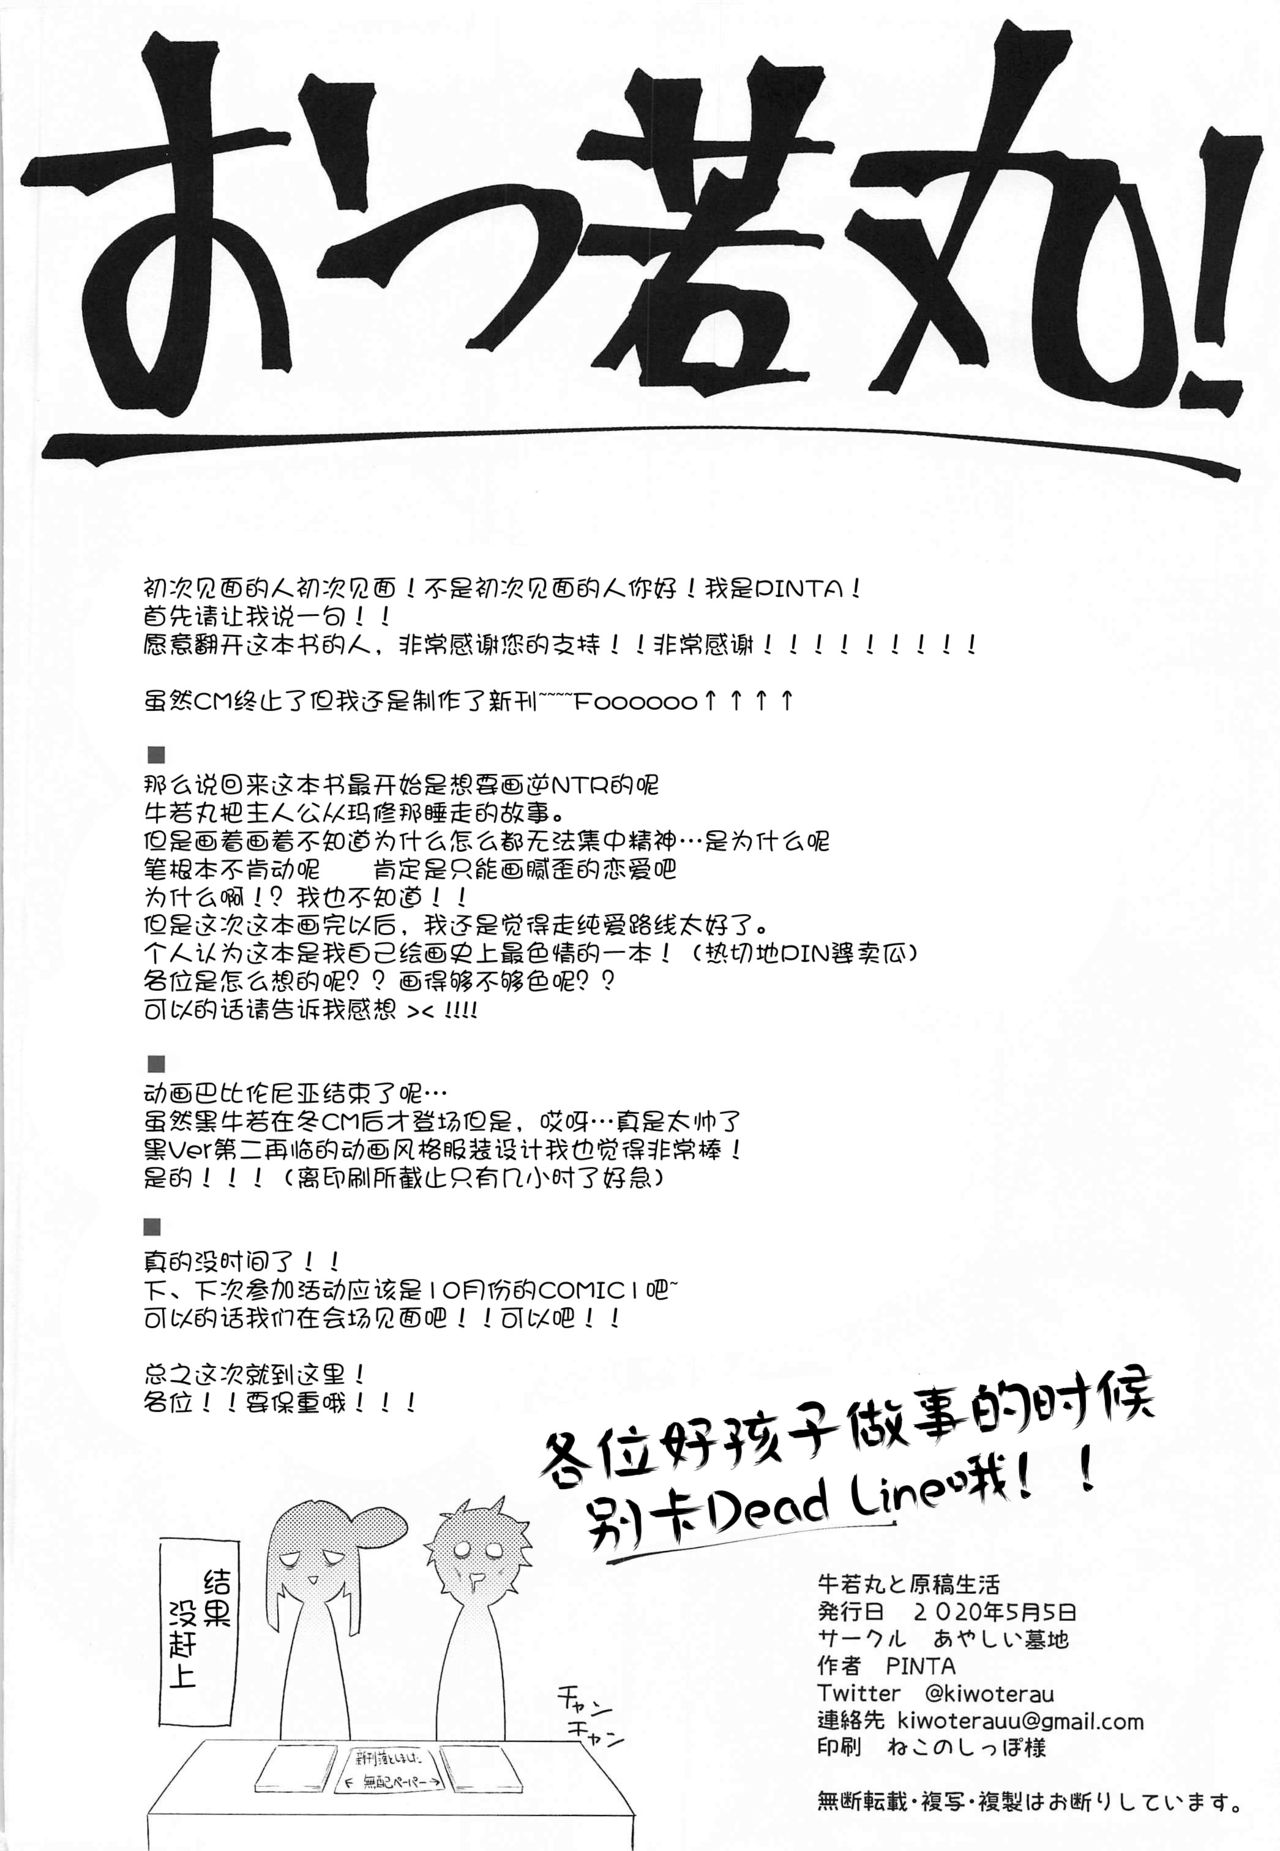 おつ若丸!
初次见面的人初次见面！不是初次见面的人你好！我是PINTA！
首先请让我说一句！！
愿意翻开这本书的人，非常感谢您的支持！！非常感谢！！！！！！！！！
虽然CM终止了但我还是制作了新刊~~~~Foooooo↑↑↑↑
■
那么说回来这本书最开始是想要画逆NTR的呢
牛若丸把主人公从玛修那睡走的故事。
但是画着画着不知道为什么怎么都无法集中精神…是为什么呢
笔根本不肯动呢　　肯定是只能画腻歪的恋爱吧
为什么啊！？我也不知道！！
但是这次这本画完以后，我还是觉得走纯爱路线太好了。
个人认为这本是我自己绘画史上最色情的一本！（热切地PIN婆卖瓜）
各位是怎么想的呢？？画得够不够色呢？？
可以的话请告诉我感想 >< !!!!
■
动画巴比伦尼亚结束了呢…
虽然黑牛若在冬CM后才登场但是，哎呀…真是太帅了
黑Ver第二再临的动画风格服装设计我也觉得非常棒！
是的！！！（离印刷所截止只有几小时了好急）
■
真的没时间了！！
下、下次参加活动应该是10月份的COMIC1吧~
可以的话我们在会场见面吧！！可以吧！！
总之这次就到这里！
各位！！要保重哦！！！
各位好孩子做事的时候
别卡Dead Line哦！！
结果
没赶上
チャン
チャン
新刊落としました
← 無配ペーパー →
牛若丸と原稿生活
発行日　２０２０年５月５日
サークル　あやしい墓地
作者　PINTA
Twitter　@kiwoterau
連絡先 kiwoterauu@gmail.com
印刷　ねこのしっぽ様
無断転載・複写・複製はお断りしています。